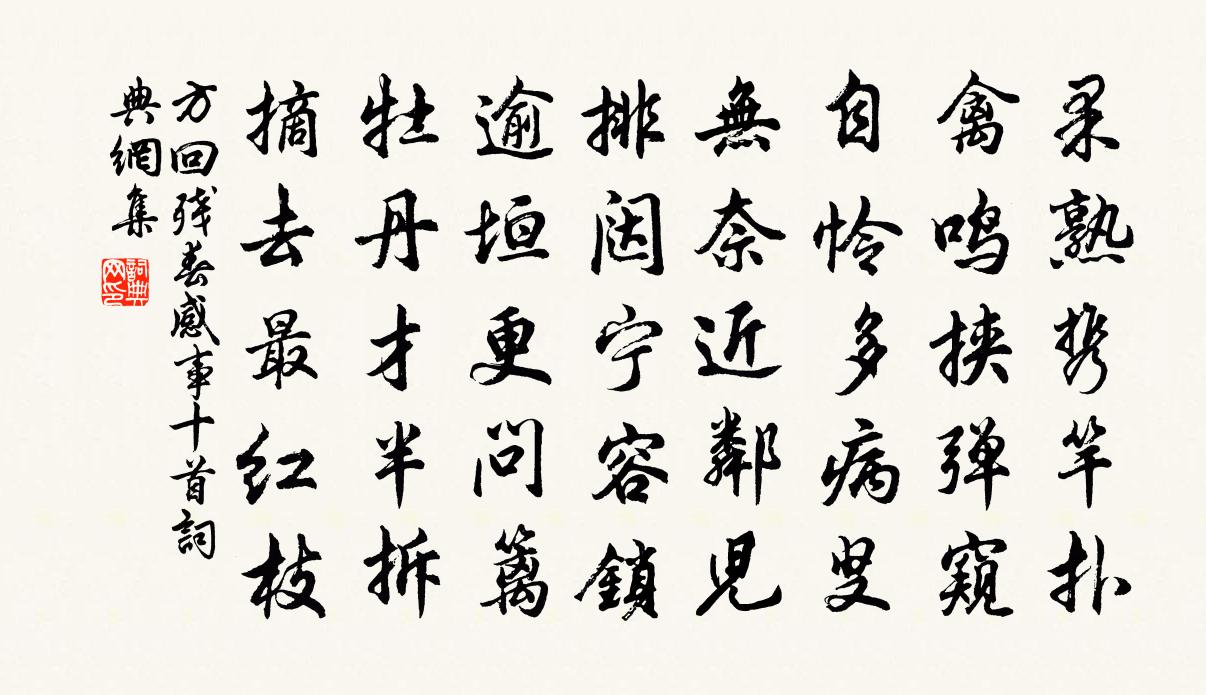 果熟携竿扑
禽鸣挟弹窺
自怜多病叟
無奈近鄰児
排闼宁容鎖
逾垣更问篱
牡丹才半拆
摘去最红枝
方回残春感事十首詞
典網集
詞典
网印